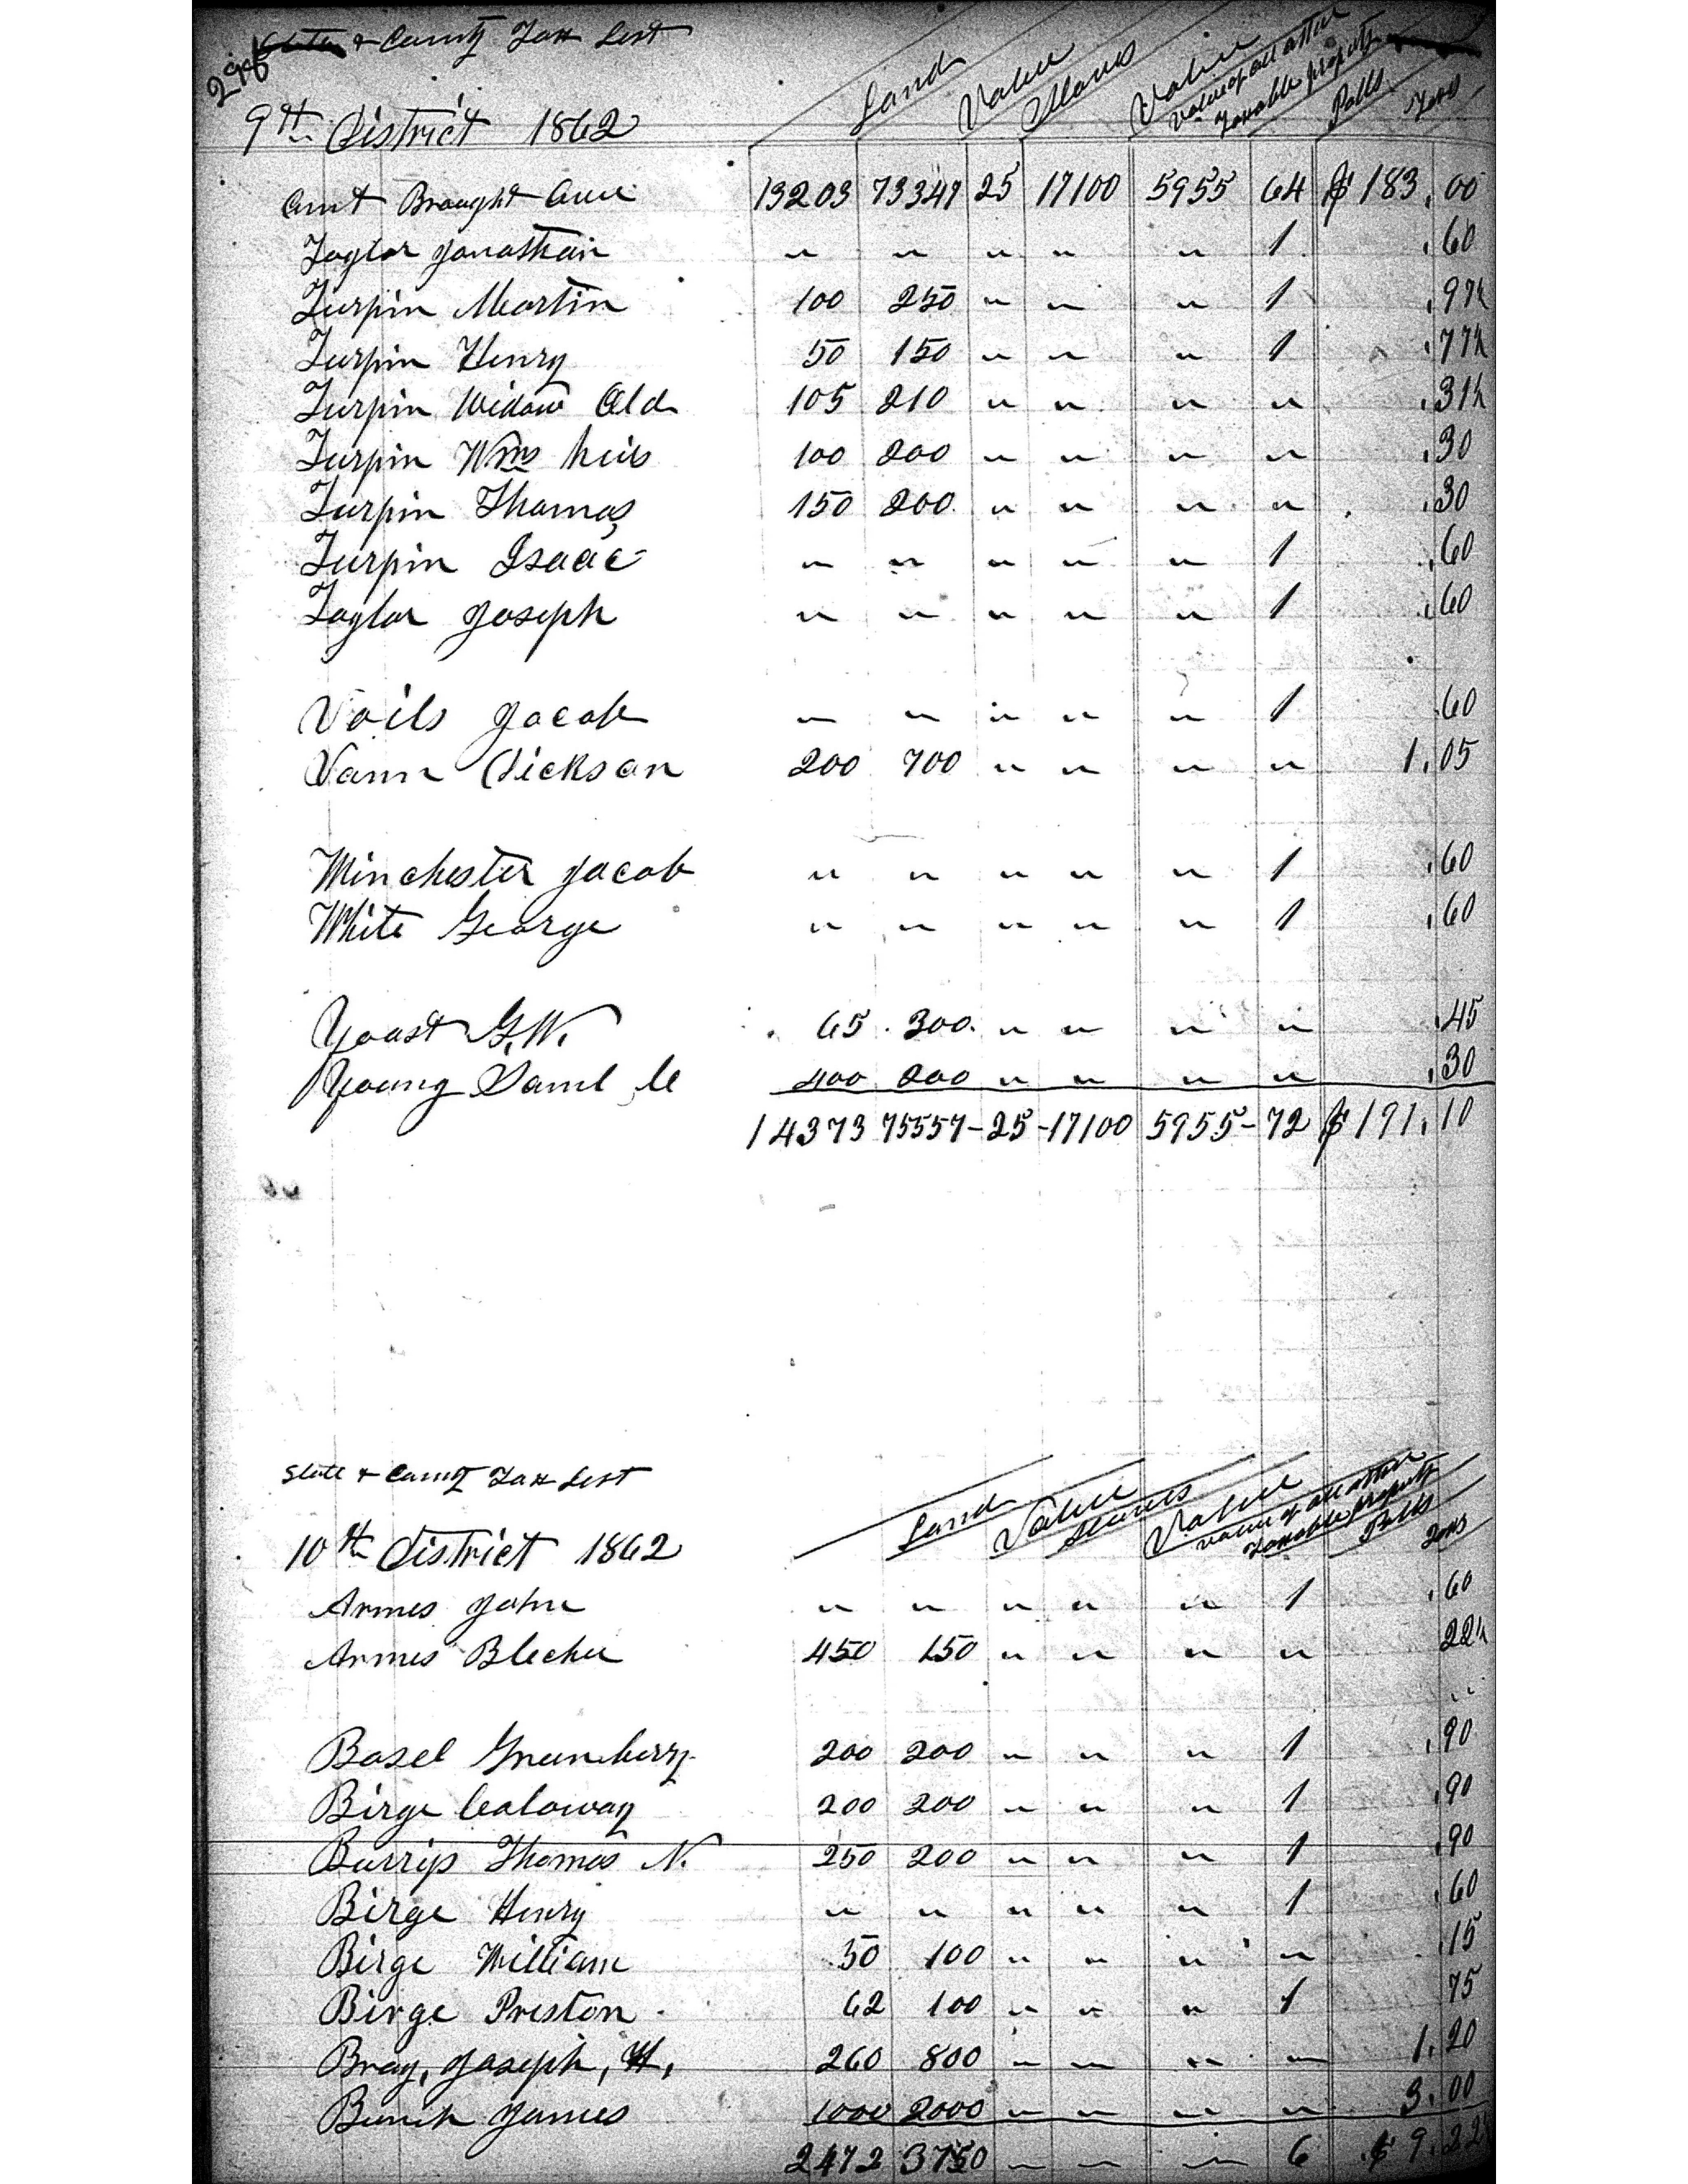 296 State & County Tax List
9th District 1862 Land Value Slaves Value Value of all other Taxable property Polls Tax
Amt Brought Over 13203 73347 25 17100 5955 64 $183.00
Taylor Jonathan " " " " " 1 .60
Turpin Martin 100 250 " " " 1 .97½
Turpin Henry 50 150 " " " 1 .77½
Turpin Widow Old 105 210 " " " " .31½
Turpin Wms heirs 100 200 " " " " .30
Turpin Thomas 150 200 " " " " .30
Turpin Isaac " " " " " 1 .60
Taylor Joseph " " " " " 1 .60
Voils Jacob " " " " " 1 .60
Vann Dickson 200 700 " " " " 1.05
Winchester Jacob " " " " " 1 .60
White George " " " " " 1 .60
Yoast G.W. 65 300 " " " " .45
Young Saml C 400 200 " " " " .30
14373 75557 - 25 - 17100 5955 - 72 $191.10
State & County Tax List
10th District 1862 Land Value Slaves Value Value of all other Taxable property Polls Tax
Armes John " " " " " 1 .60
Armes Blecher 450 150 " " " " 22½
Basel Greenberry 200 200 " " " 1 .90
Birge Caloway 200 200 " " " 1 .90
Burris Thomas N. 250 200 " " " 1 .90
Birge Henry " " " " " 1 .60
Birge William 50 100 " " " " .15
Birge Preston 62 100 " " " 1 75
Bray, Joseph, H, 260 800 " " " " 1.20
Bunch James 1000 2000 " " " " 3.00
2472 3750 " " " 6 $9.22½